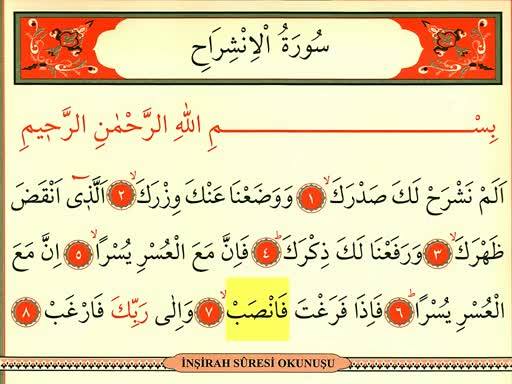 سُورَةُ الْاِنْشِرَاحِ
بِسْمِ اللهِ الرَّحْمٰنِ الرَّح۪يمِ
اَلَمْ نَشْرَحْ لَكَ صَدْرَكَۙ ﴿١﴾ وَوَضَعْنَا عَنْكَ وِزْرَكَۙ ﴿٢﴾ اَلَّذ۪ٓى اَنْقَضَ
ظَهْرَكَۙ ﴿٣﴾ وَرَفَعْنَا لَكَ ذِكْرَكَۜ ﴿٤﴾ فَاِنَّ مَعَ الْعُسْرِ يُسْرًاۙ ﴿٥﴾ اِنَّ مَعَ
الْعُسْرِ يُسْرًاۜ ﴿٦﴾ فَاِذَا فَرَغْتَ فَانْصَبْۙ ﴿٧﴾ وَاِلٰى رَبِّكَ فَارْغَبْ ﴿٨﴾
İNŞİRAH SÛRESİ OKUNUŞU